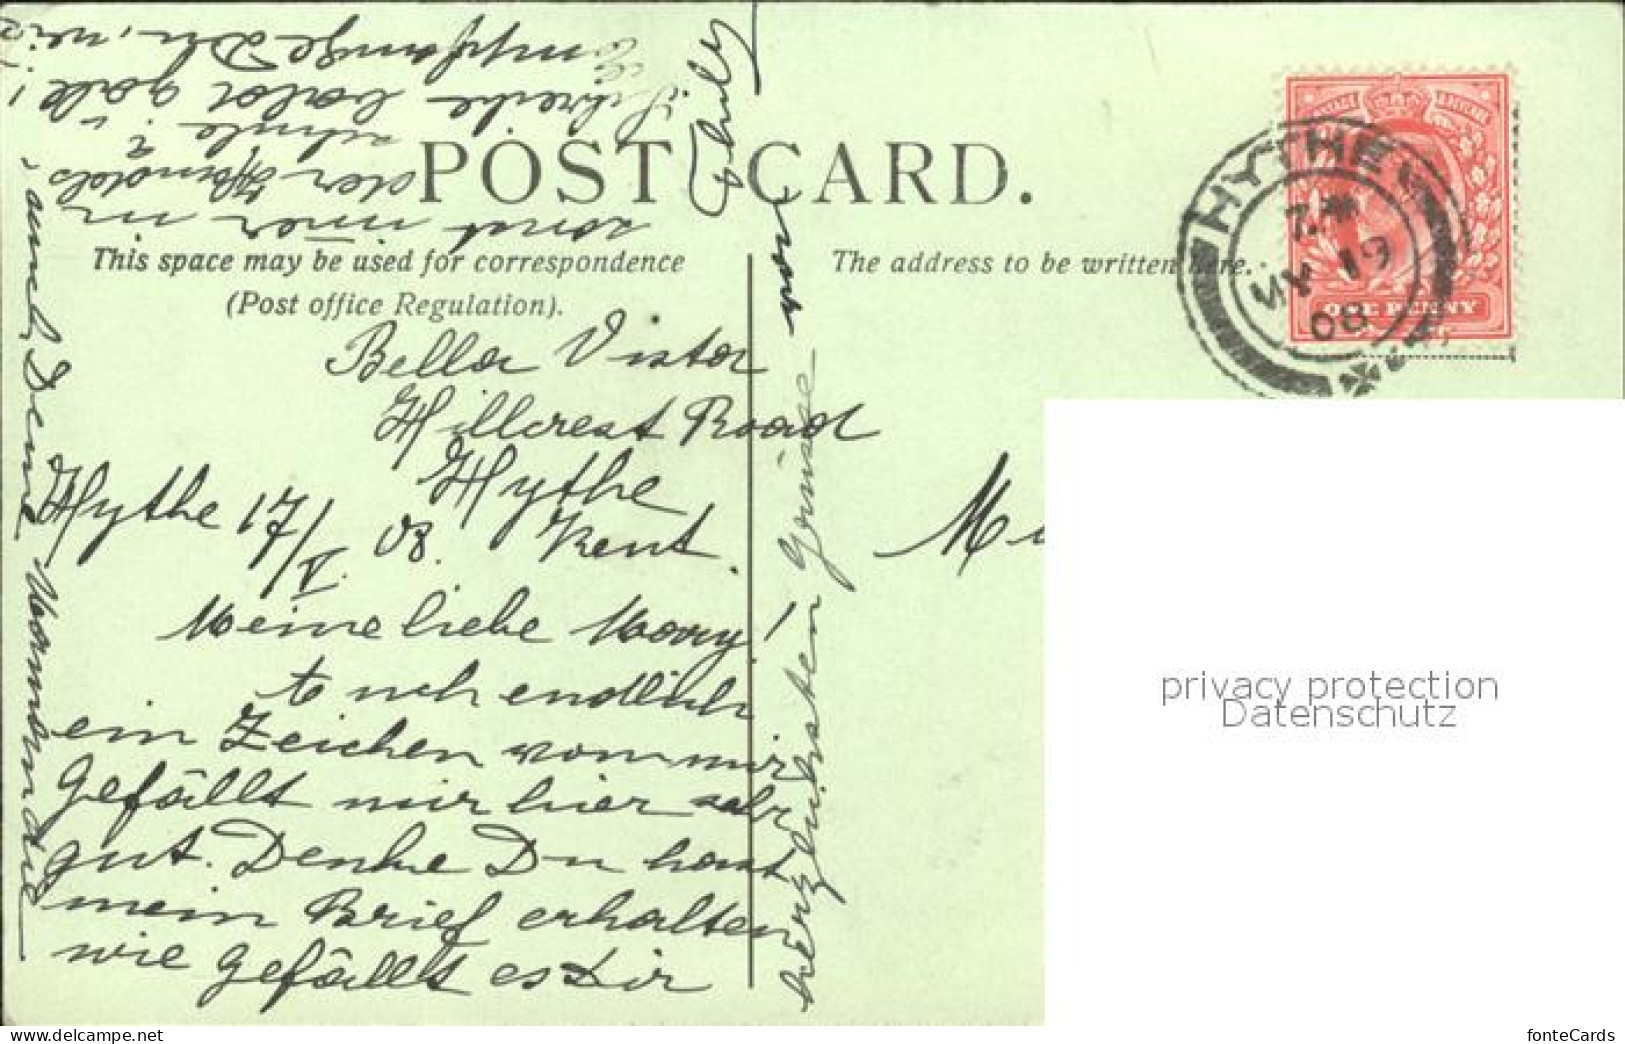 POST CARD.
This space may be used for correspondence
(Post office Regulation).
The address to be written here.
HYTHE
MY 19
08
ONE PENNY
Bella Vista
Hillcrest Road
Hythe
Kent.
Hythe 17/V. 08.
Meine liebe
endlich
ein Zeichen von mir
Gefällt mir hier sehr
gut. Denke Du hast
mein Brief erhalten
wie gefällt es Dir
sonst immer in
der
schule?
Schreibe bald
Empfange Du,
herzlichsten Grüsse von
privacy protection
Datenschutz
www.delcampe.net
fonteCards